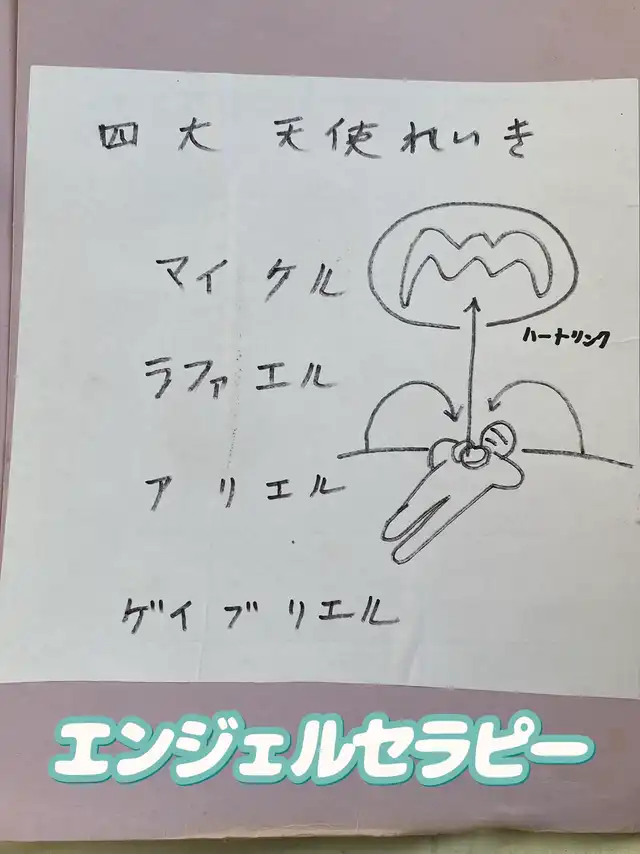 四大天使れいき
マイケル
ハートリンク
ラファエル
アリエル
ゲイブリエル
エンジェルセラピー